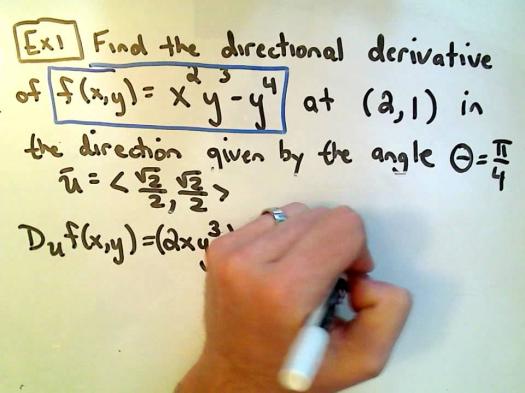 Ex 1 Find the directional derivative
of f(x,y) = x²y³ - y⁴ at (2,1) in
the direction given by the angle Θ = π/4
ū = < √2/2, √2/2 >
Dᵤf(x,y) = (2xy³)